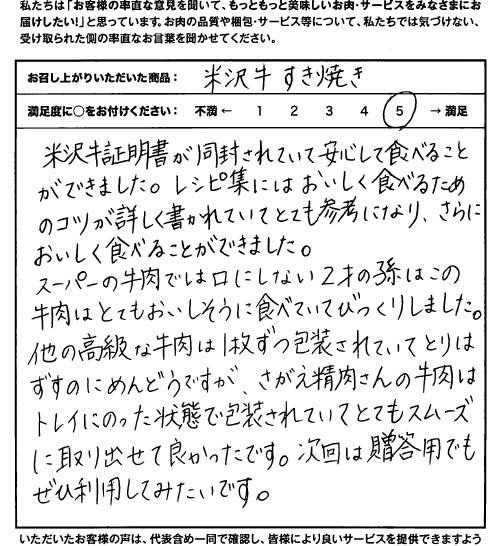 私たちは「お客様の率直な意見を聞いて、もっともっと美味しいお肉・サービスをみなさまにお
届けしたい!」と思っています。お肉の品質や梱包・サービス等について、私たちでは気づけない、
受け取られた側の率直なお言葉を聞かせてください。
お召し上がりいただいた商品： 米沢牛 すき焼き
満足度に○をお付けください： 不満 ← 1 2 3 4 5 → 満足
米沢牛証明書が同封されていて安心して食べること
ができました。レシピ集にはおいしく食べるため
のコツが詳しく書かれていてとても参考になり、さらに
おいしく食べることができました。
スーパーの牛肉では口にしない2才の孫はこの
牛肉はとてもおいしそうに食べていてびっくりしました。
他の高級な牛肉は1枚ずつ包装されていてとりは
ずすのにめんどうですが、さがえ精肉さんの牛肉は
トレイにのった状態で包装されていてとてもスムーズ
に取り出せて良かったです。次回は贈答用でも
ぜひ利用してみたいです。
いただいたお客様の声は、代表含め一同で確認し、皆様により良いサービスを提供できますよう